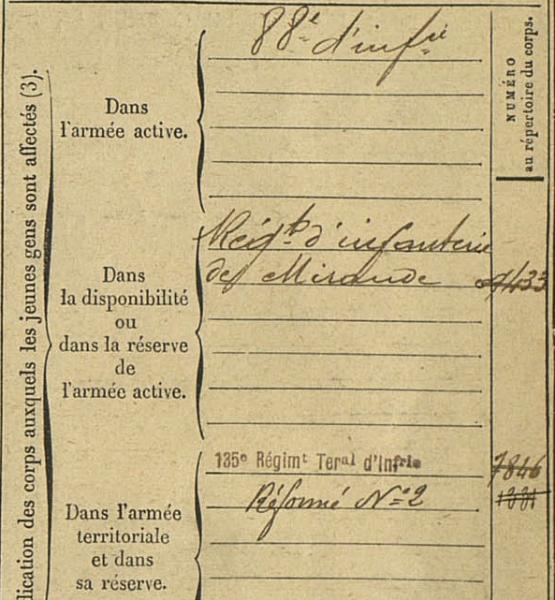 dication des corps auxquels les jeunes gens sont affectés (3).
NUMÉRO
au répertoire du corps.
Dans
l'armée active.
88e d'infie
Dans
la disponibilité
ou
dans la réserve
de
l'armée active.
Régt d'infanterie
de Mirande
Dans l'armée
territoriale
et dans
sa réserve.
135e Régimt Teral d'Infrie
7846
Réformé No 2
1381